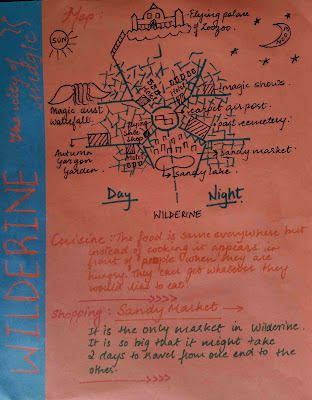 WILDERINE The city of magic
Map:
Flying palace
of Zoozoo.
SUN
magic shows.
Magic dust
waterfall.
carpit airpost.
past cemetery.
Flying
shoe
shop
Hotel
Motel
Autumn
Gargon
Garden.
sandy market.
Sandy lake.
Day
Night
WILDERINE
Cuisine: The food is same everywhere but
instead of cooking it appears in
front of people when they are
hungry. They can get whatever they
would like to eat.
Shopping: Sandy Market
It is the only market in Wilderine.
It is so big that it might take
2 days to travel from one end to the
other.